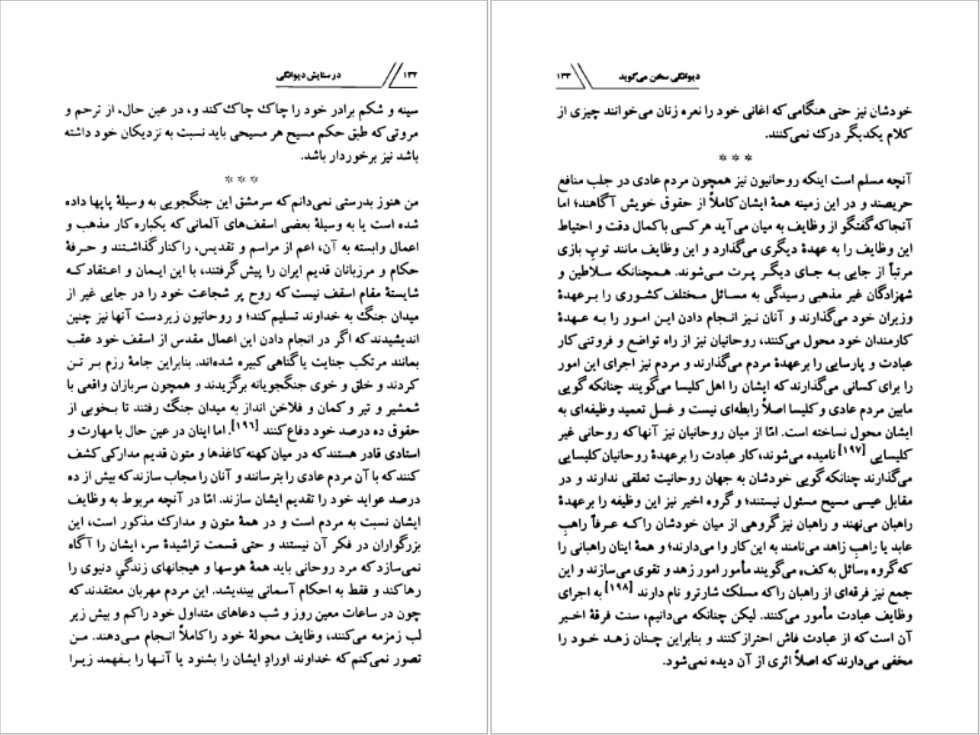 ۱۳۲ در ستایش دیوانگی
سینه و شکم برادر خود را چاک چاک کند و، در عین حال، از ترحم و
مروتی که طبق حکم مسیح هر مسیحی باید نسبت به نزدیکان خود داشته
باشد نیز برخوردار باشد.
* * *
من هنوز بدرستی نمی‌دانم که سرمشق این جنگجویی به وسیلهٔ پاپها داده
شده است یا به وسیلهٔ بعضی اسقف‌های آلمانی که یکباره کار مذهب و
اعمال وابسته به آن، اعم از مراسم و تقدیس، را کنار گذاشتند و حرفهٔ
حکام و مرزبانان قدیم ایران را پیش گرفتند، با این ایمان و اعتقاد که
شایستهٔ مقام اسقف نیست که روح پر شجاعت خود را در جایی غیر از
میدان جنگ به خداوند تسلیم کند؛ و روحانیون زیردست آنها نیز چنین
اندیشیدند که اگر در انجام دادن این اعمال مقدس از اسقف خود عقب
بمانند مرتکب جنایت یا گناهی کبیره شده‌اند. بنابراین جامهٔ رزم بر تن
کردند و خلق و خوی جنگجویانه برگزیدند و همچون سربازان واقعی با
شمشیر و تیر و کمان و فلاخن انداز به میدان جنگ رفتند تا بخوبی از
حقوق ده درصد خود دفاع کنند [۱۹۶]. اما اینان در عین حال با مهارت و
استادی قادر هستند که در میان کهنه کاغذها و متون قدیم مدارکی کشف
کنند که با آن مردم عادی را بترسانند و آنان را مجاب سازند که بیش از ده
درصد عواید خود را تقدیم ایشان سازند. امّا در آنچه مربوط به وظایف
ایشان نسبت به مردم است و در همهٔ متون و مدارک مذکور است، این
بزرگواران در فکر آن نیستند و حتی قسمت تراشیدهٔ سر، ایشان را آگاه
نمی‌سازد که مرد روحانی باید همهٔ هوسها و هیجانهای زندگیِ دنیوی را
رها کند و فقط به احکام آسمانی بیندیشد. این مردم مهربان معتقدند که
چون در ساعات معین روز و شب دعاهای متداول خود را کم و بیش زیر
لب زمزمه می‌کنند، وظایف محولهٔ خود را کاملاً انجام می‌دهند. من
تصور نمی‌کنم که خداوند اورادِ ایشان را بشنود یا آنها را بفهمد زیرا
دیوانگی سخن می‌گوید ۱۳۳
خودشان نیز حتی هنگامی که اغانی خود را نعره زنان می‌خوانند چیزی از
کلام یکدیگر درک نمی‌کنند.
* * *
آنچه مسلم است اینکه روحانیون نیز همچون مردم عادی در جلب منافع
حریصند و در این زمینه همهٔ ایشان کاملاً از حقوق خویش آگاهند؛ اما
آنجا که گفتگو از وظایف به میان می‌آید هر کسی با کمال دقت و احتیاط
این وظایف را به عهدهٔ دیگری می‌گذارد و این وظایف مانند توپ بازی
مرتباً از جایی به جای دیگر پرت می‌شوند. همچنانکه سلاطین و
شهزادگان غیر مذهبی رسیدگی به مسائل مختلف کشوری را برعهدهٔ
وزیران خود می‌گذارند و آنان نیز انجام دادن این امور را به عهدهٔ
کارمندان خود محول می‌کنند، روحانیان نیز از راه تواضع و فروتنی کار
عبادت و پارسایی را برعهدهٔ مردم می‌گذارند و مردم نیز اجرای این امور
را برای کسانی می‌گذارند که ایشان را اهل کلیسا می‌گویند چنانکه گویی
مابین مردم عادی و کلیسا اصلاً رابطه‌ای نیست و غسل تعمید وظیفه‌ای به
ایشان محول نساخته است. امّا از میان روحانیان نیز آنها که روحانی غیر
کلیسایی [۱۹۷] نامیده می‌شوند، کار عبادت را برعهدهٔ روحانیان کلیسایی
می‌گذارند چنانکه گویی خودشان به جهان روحانیت تعلقی ندارند و در
مقابل عیسی مسیح مسئول نیستند؛ و گروه اخیر نیز این وظیفه را برعهدهٔ
راهبان می‌نهند و راهبان نیز گروهی از میان خودشان را که عرفاً راهبِ
عابد یا راهبِ زاهد می‌نامند به این کار وا می‌دارند؛ و همهٔ اینان راهبانی را
که گروه «سائل به کف» می‌گویند مأمور امور زهد و تقوی می‌سازند و این
جمع نیز فرقه‌ای از راهبان را که مسلک شارترو نام دارند [۱۹۸] به اجرای
وظایف عبادت مأمور می‌کنند. لیکن چنانکه می‌دانیم، سنت فرقهٔ اخیر
آن است که از عبادت فاش احتراز کنند و بنابراین چنان زهد خود را
مخفی می‌دارند که اصلاً اثری از آن دیده نمی‌شود.